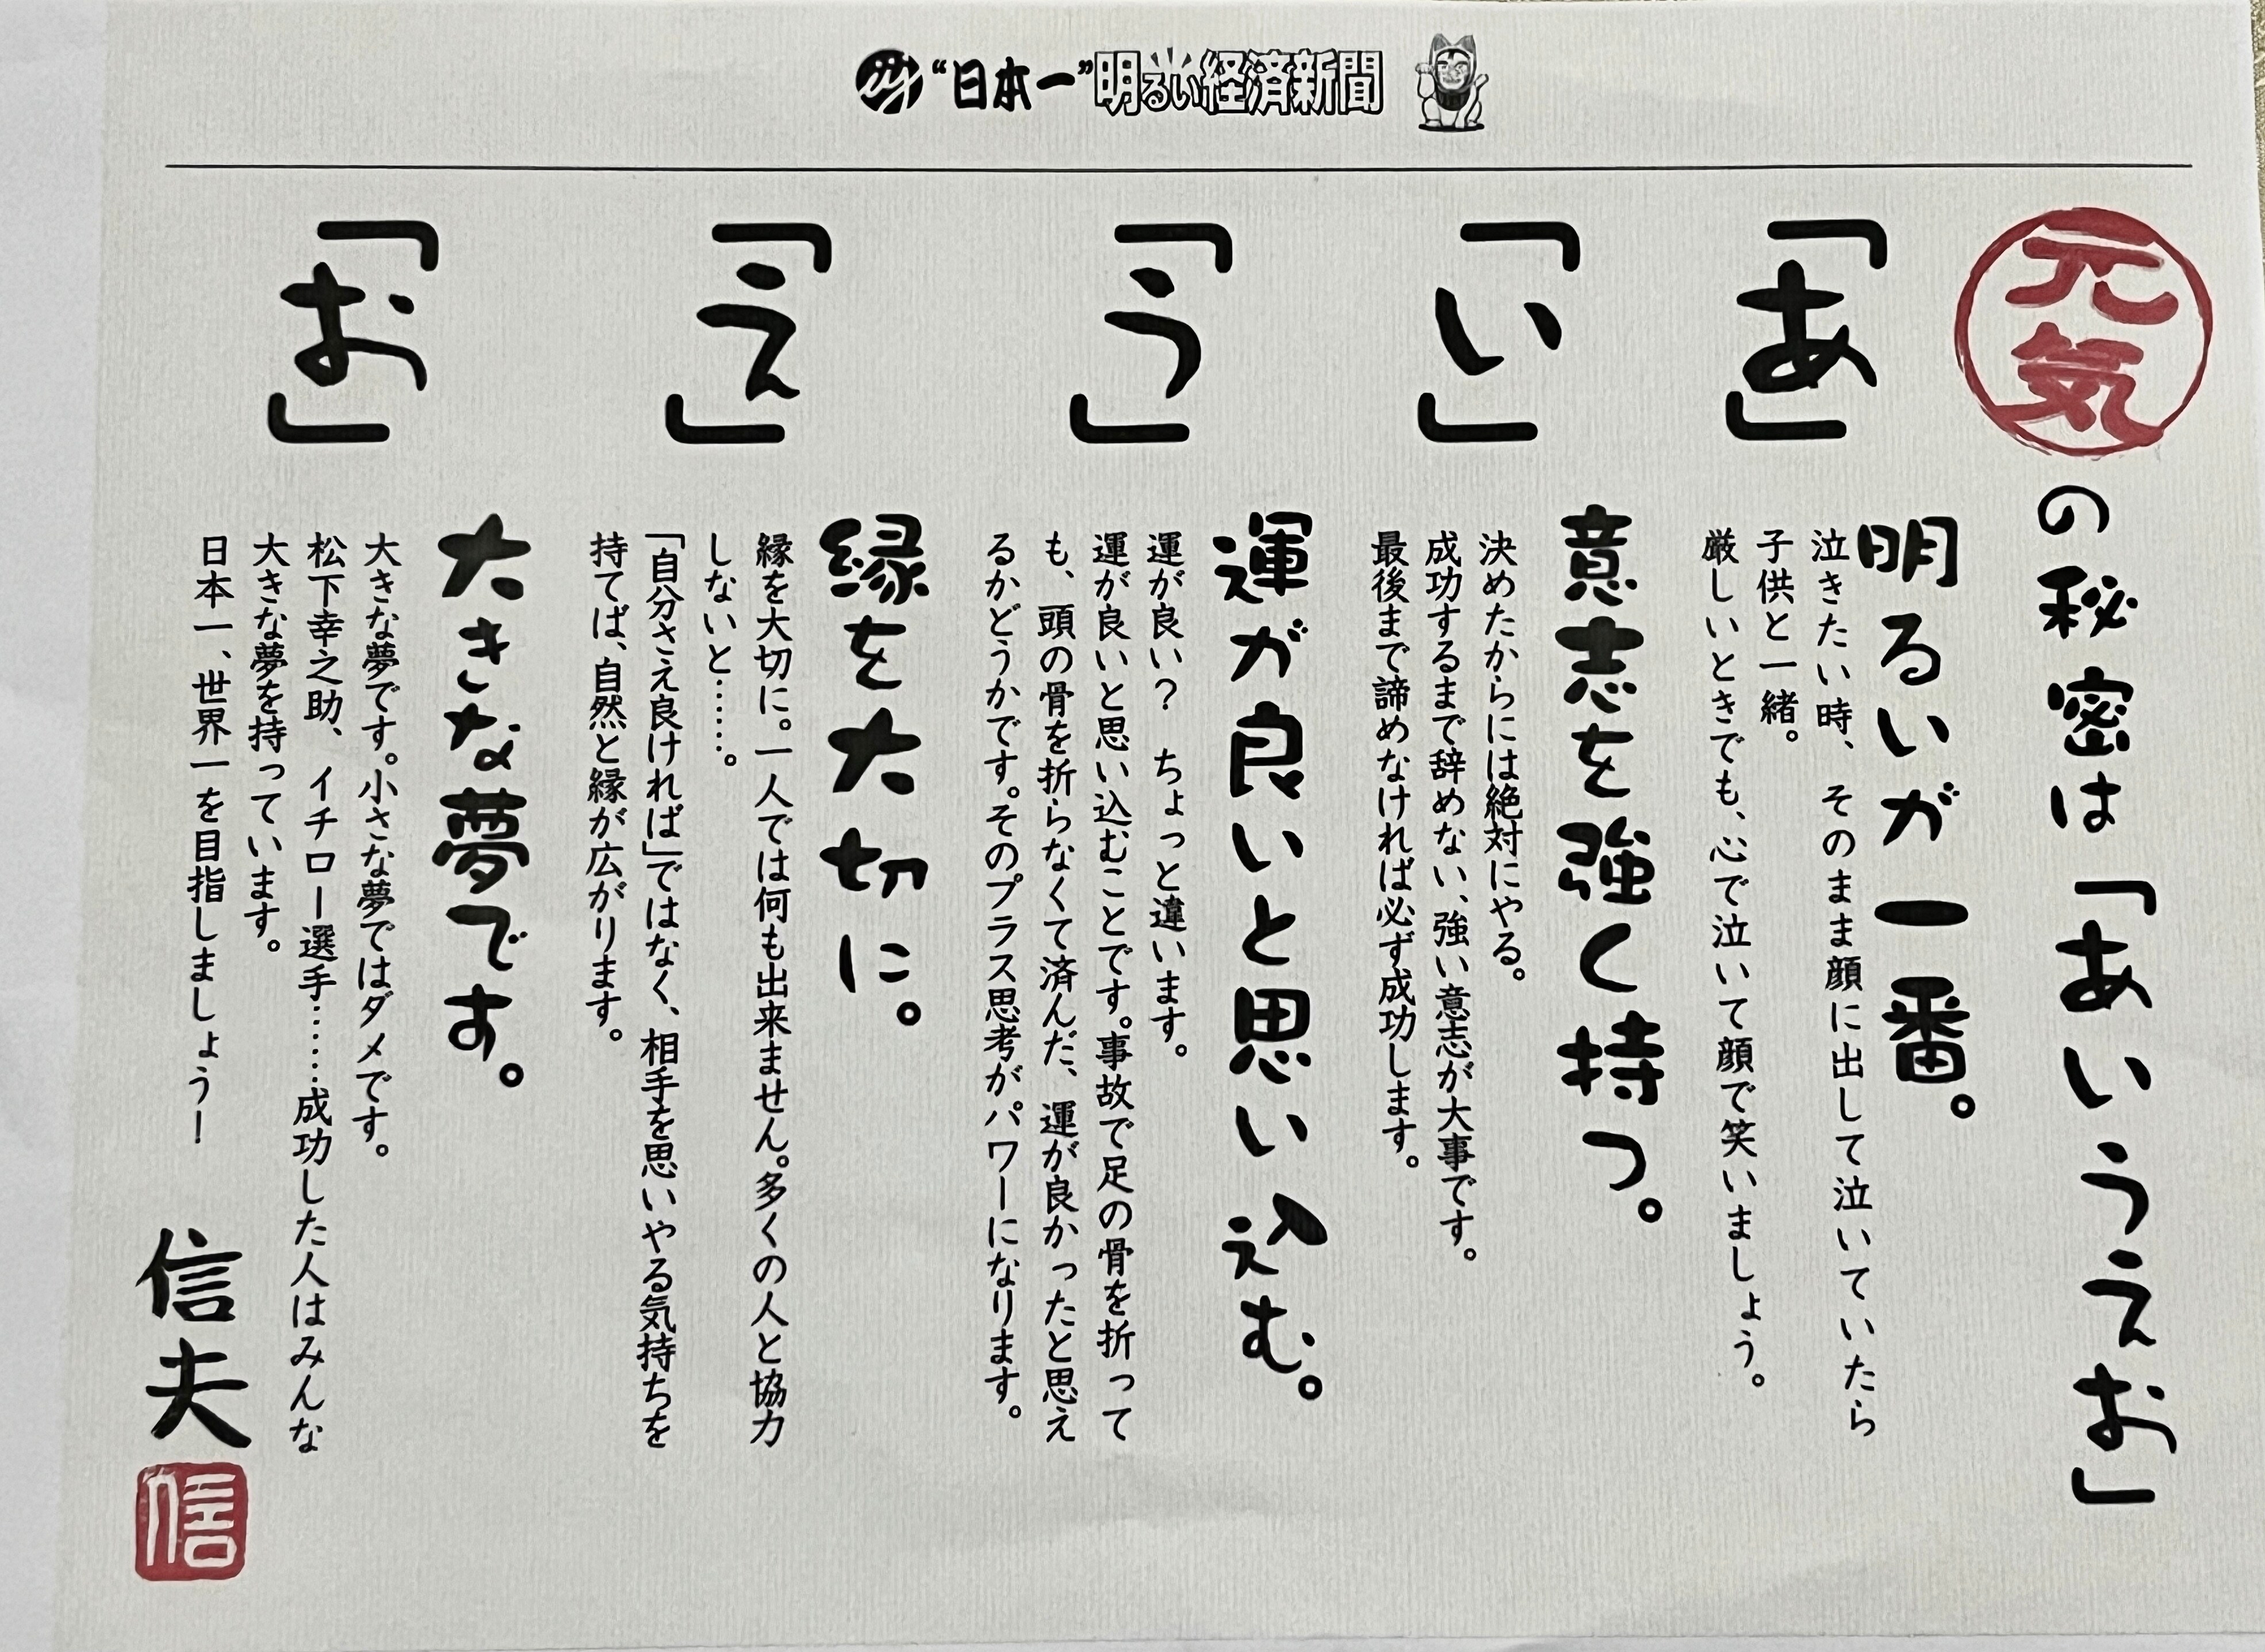 “日本一”明るい経済新聞
元気の秘密は「あいうえお」
「あ」
明るいが一番。
泣きたい時、そのまま顔に出して泣いていたら
子供と一緒。
厳しいときでも、心で泣いて顔で笑いましょう。
「い」
意志を強く持つ。
決めたからには絶対にやる。
成功するまで辞めない、強い意志が大事です。
最後まで諦めなければ必ず成功します。
「う」
運が良いと思い込む。
運が良い？ ちょっと違います。
運が良いと思い込むことです。事故で足の骨を折って
も、頭の骨を折らなくて済んだ、運が良かったと思え
るかどうかです。そのプラス思考がパワーになります。
「え」
縁を大切に。
縁を大切に。一人では何も出来ません。多くの人と協力
しないと……。
「自分さえ良ければ」ではなく、相手を思いやる気持ちを
持てば、自然と縁が広がります。
「お」
大きな夢です。
大きな夢です。小さな夢ではダメです。
松下幸之助、イチロー選手……成功した人はみんな
大きな夢を持っています。
日本一、世界一を目指しましょうー
信夫
信